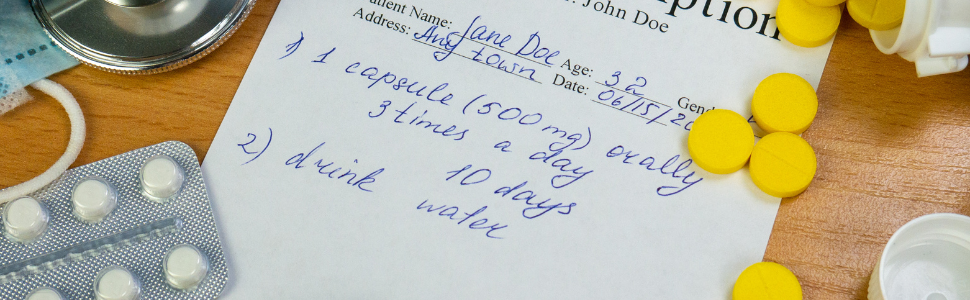 ption
: John Doe
atient Name: Jane Doe Age: 32
Address: Any town Date: 06/15/20
1) 1 capsule (500 mg) orally
3 times a day
10 days
2) drink water